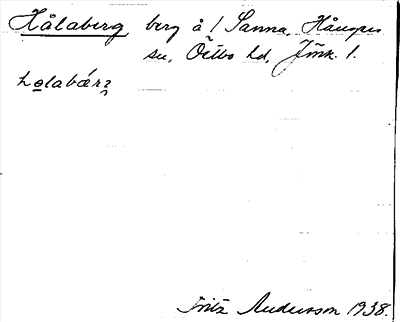 Hålaberg berg å 1 Sanna, Hånger
sn, Östbo hd, Jönk. l.
hǫlabárʒ
Fritz Andersson 1938.